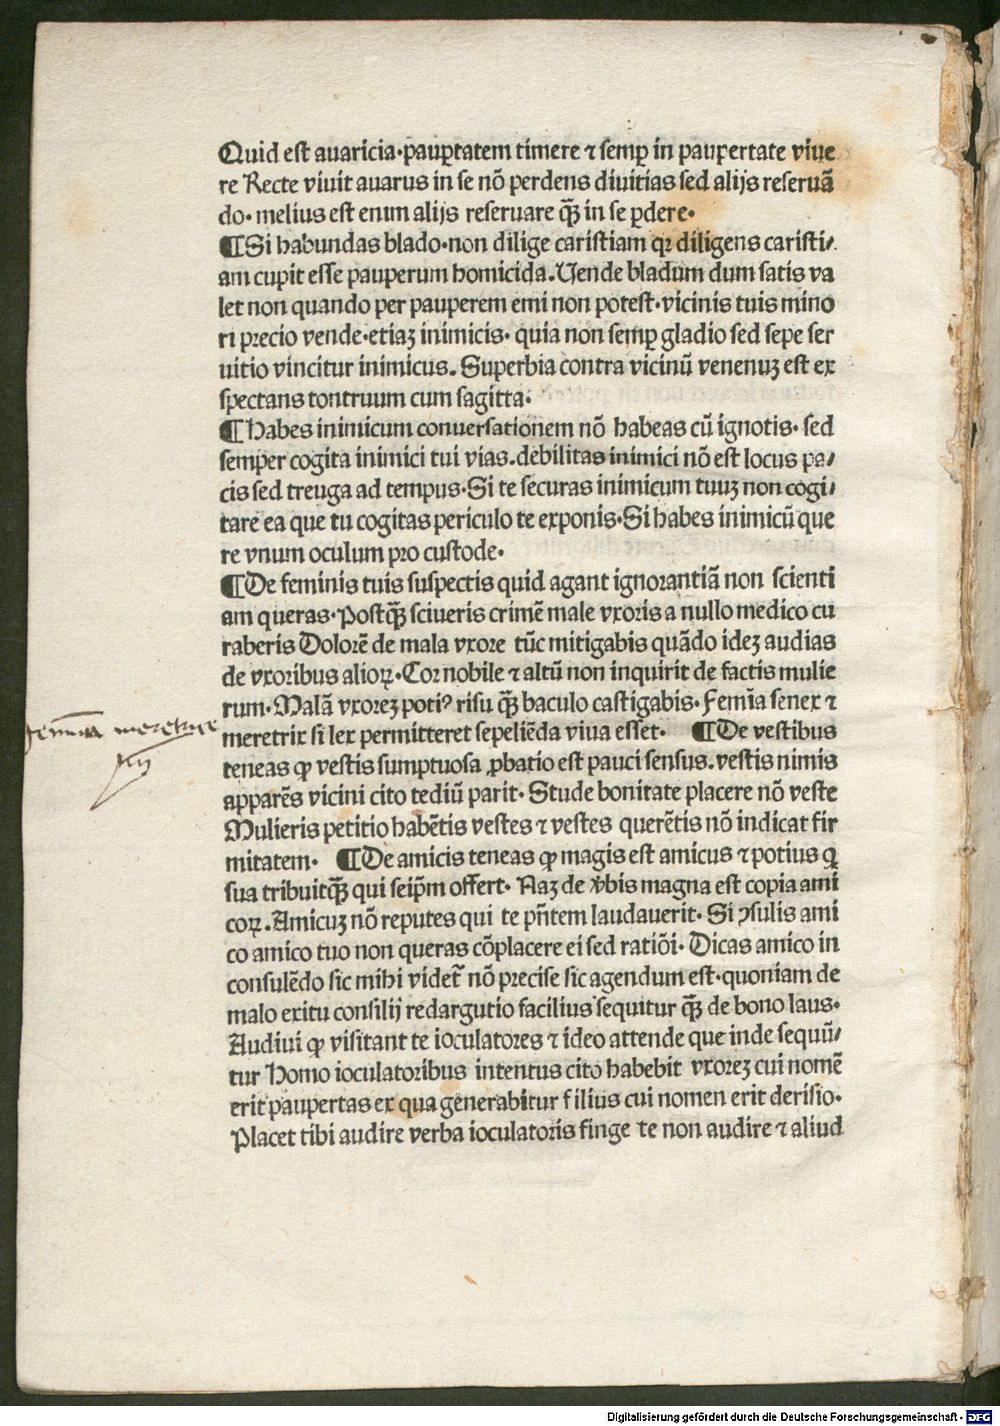 Quid est auaricia·paup̱tatem timere ⁊ semp̱ in paupertate viue
re Recte viuit auarus in se nō perdens diuitias sed alijs reseruā
do· melius est enim alijs reseruare q̄ꝫ in se ꝑdere·
¶Si habundas blado·non dilige caristiam qꝛ diligens caristi/
am cupit esse pauperum homicida. Vende bladum dum satis va
let non quando per pauperem emi non potest·vicinis tuis mino
ri precio vende·etiaꝫ inimicis· quia non semꝑ gladio sed sepe ser
uitio vincitur inimicus. Superbia contra vicinū venenuꝫ est ex
spectans tontruum cum sagitta·
¶Habes inimicum conuersationem nō habeas cū ignotis· sed
semper cogita inimici tui vias.debilitas inimici nō est locus pa/
cis sed treuga ad tempus·Si te securas inimicum tuuꝫ non cogi/
tare ea que tu cogitas periculo te exponis·Si habes inimicū que
re vnum oculum pro custode·
¶De feminis tuis suspectis quid agant ignorantiā non scienti
am queras·Postq̄ꝫ sciueris crimē male vxoris a nullo medico cu
raberis Dolorē de mala vxore tūc mitigabis quādo ideꝫ audias
de vxoribus alioꝝ·Cor nobile ⁊ altū non inquirit de factis mulie
rum·Malā vxoreꝫ potiꝰ risu q̄ꝫ baculo castigabis·Femīa senex ⁊
meretrix si lex permitteret sepeliēda viua esset· ¶De vestibus
teneas ꝙ vestis sumptuosa ꝓbatio est pauci sensus.vestis nimis
apparēs vicini cito tediū parit·Stude bonitate placere nō veste
Mulieris petitio habētis vestes ⁊ vestes querētis nō indicat fir
mitatem· ¶De amicis teneas ꝙ magis est amicus ⁊ potius q̄
sua tribuit q̄ꝫ qui seip̄m offert· Naꝫ de v̄bis magna est copia ami
coꝝ.Amicuꝫ nō reputes qui te pn̄tem laudauerit· Si ꝯsulis ami
co amico tuo non queras cōplacere ei sed ratiōi· Dicas amico in
consulēdo sic mihi videt᷑ nō precise sic agendum est·quoniam de
malo exitu consilij redargutio facilius sequitur q̄ꝫ de bono laus·
Audiui ꝙ visitant te ioculatores ⁊ ideo attende que inde sequū/
tur Homo ioculatoribus intentus cito habebit vxoreꝫ cui nomē
erit paupertas ex qua generabitur filius cui nomen erit derisio·
Placet tibi audire verba ioculatoris finge te non audire ⁊ aliud
femina meretrice
Digitalisierung gefördert durch die Deutsche Forschungsgemeinschaft - DFG